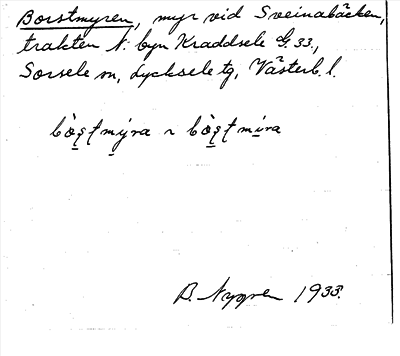 Borstmyren, myr vid Sveinabäcken,
trakten N. byn Kraddsele G. 33.,
Sorsele sn, Lycksele tg, Västerb. l.
bo̱s̩t̩my̱ra ~ bo̱s̩t̩mu̱ra
B. Nygren 1933.